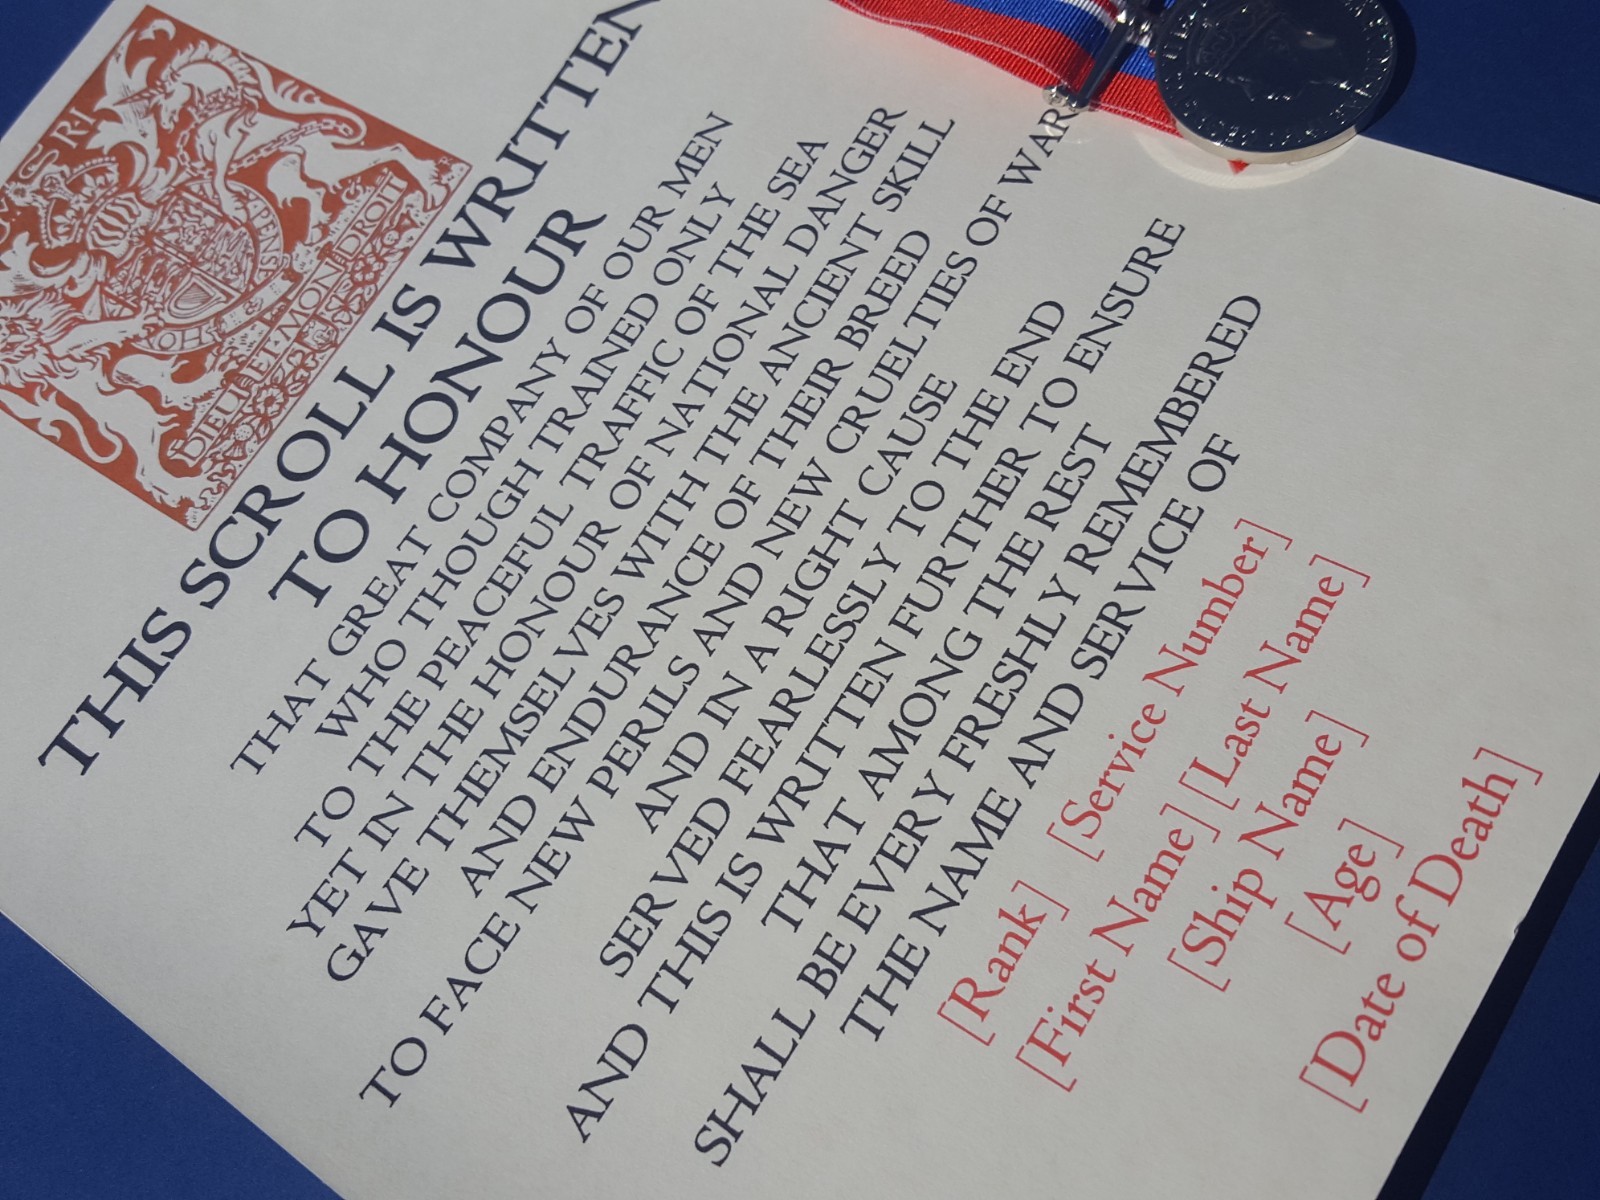 G RI
HO
PENSE
DIEU ET MON DROIT
THIS SCROLL IS WRITTEN
TO HONOUR
THAT GREAT COMPANY OF OUR MEN
WHO THOUGH TRAINED ONLY
TO THE PEACEFUL TRAFFIC OF THE SEA
YET IN THE HONOUR OF NATIONAL DANGER
GAVE THEMSELVES WITH THE ANCIENT SKILL
AND ENDURANCE OF THEIR BREED
TO FACE NEW PERILS AND NEW CRUELTIES OF WAR
AND IN A RIGHT CAUSE
SERVED FEARLESSLY TO THE END
AND THIS IS WRITTEN FURTHER TO ENSURE
THAT AMONG THE REST
SHALL BE EVERY FRESHLY REMEMBERED
THE NAME AND SERVICE OF
[Rank] [Service Number]
[First Name] [Last Name]
[Ship Name]
[Age]
[Date of Death]